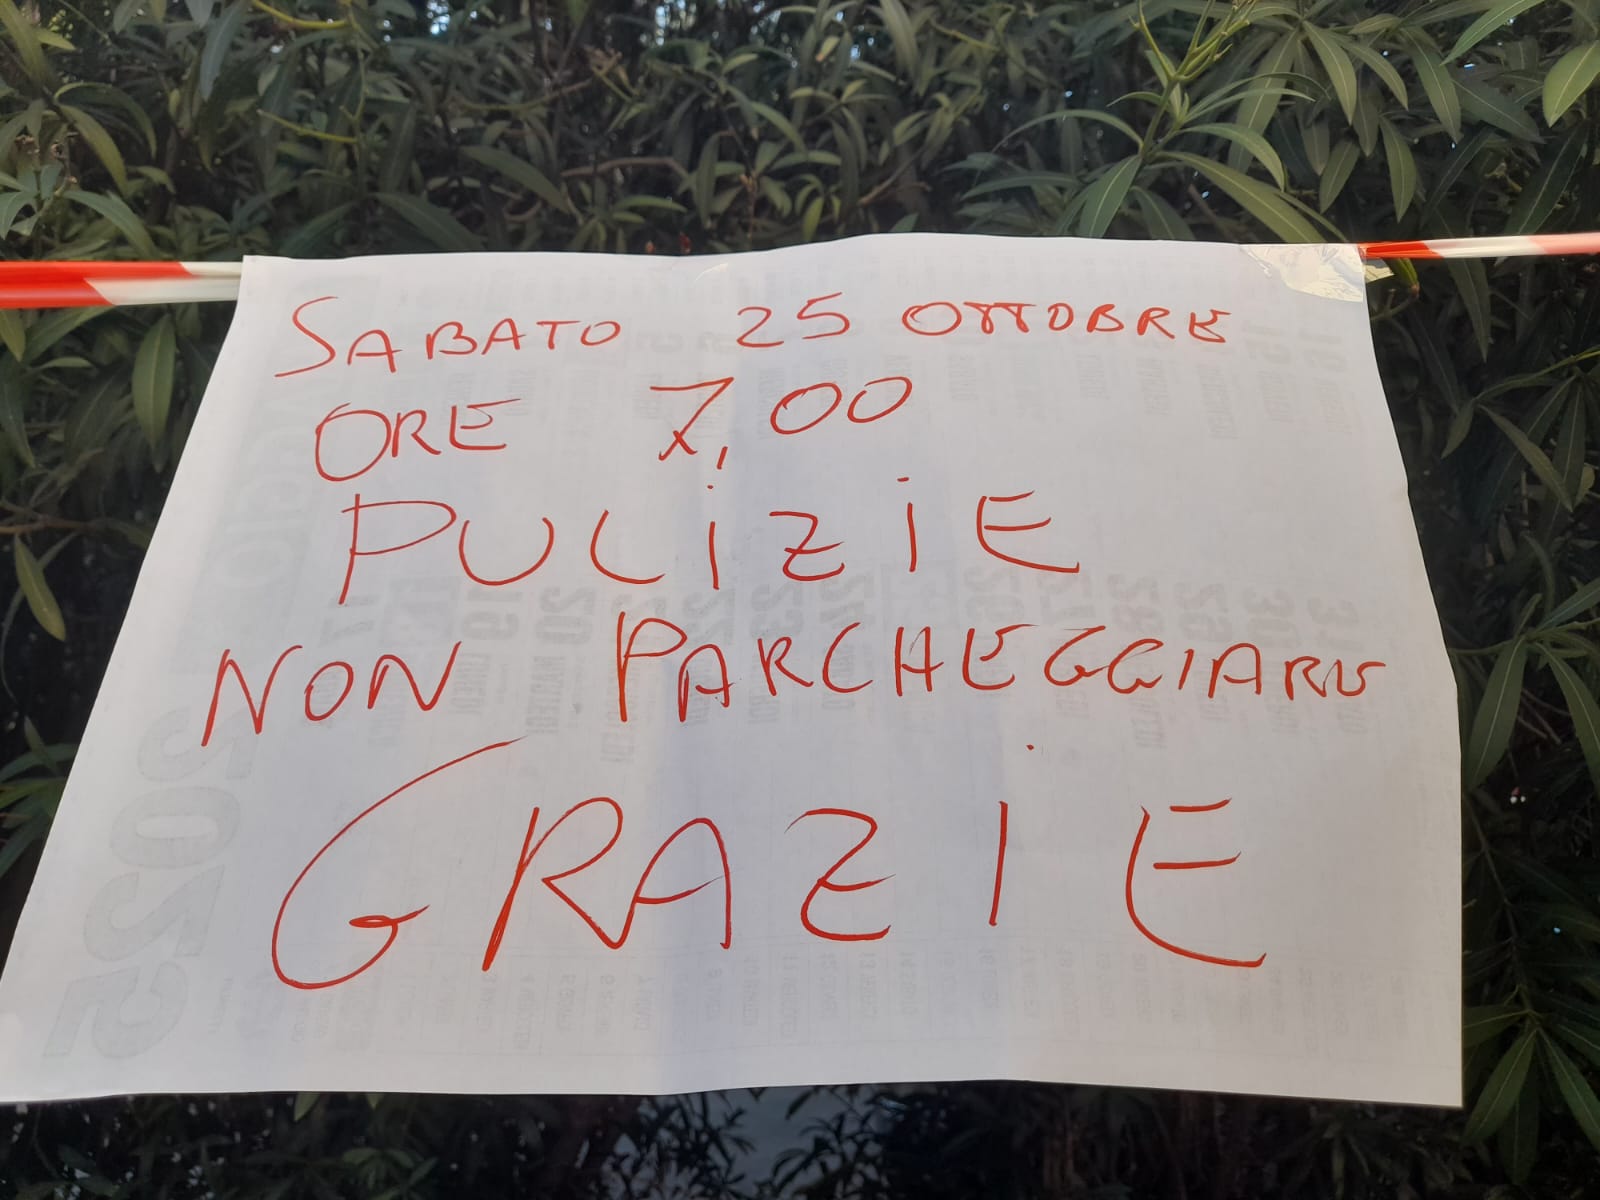 SABATO 25 OTTOBRE
ORE 7,00
PULIZIE
NON PARCHEGGIARE
GRAZIE
2025